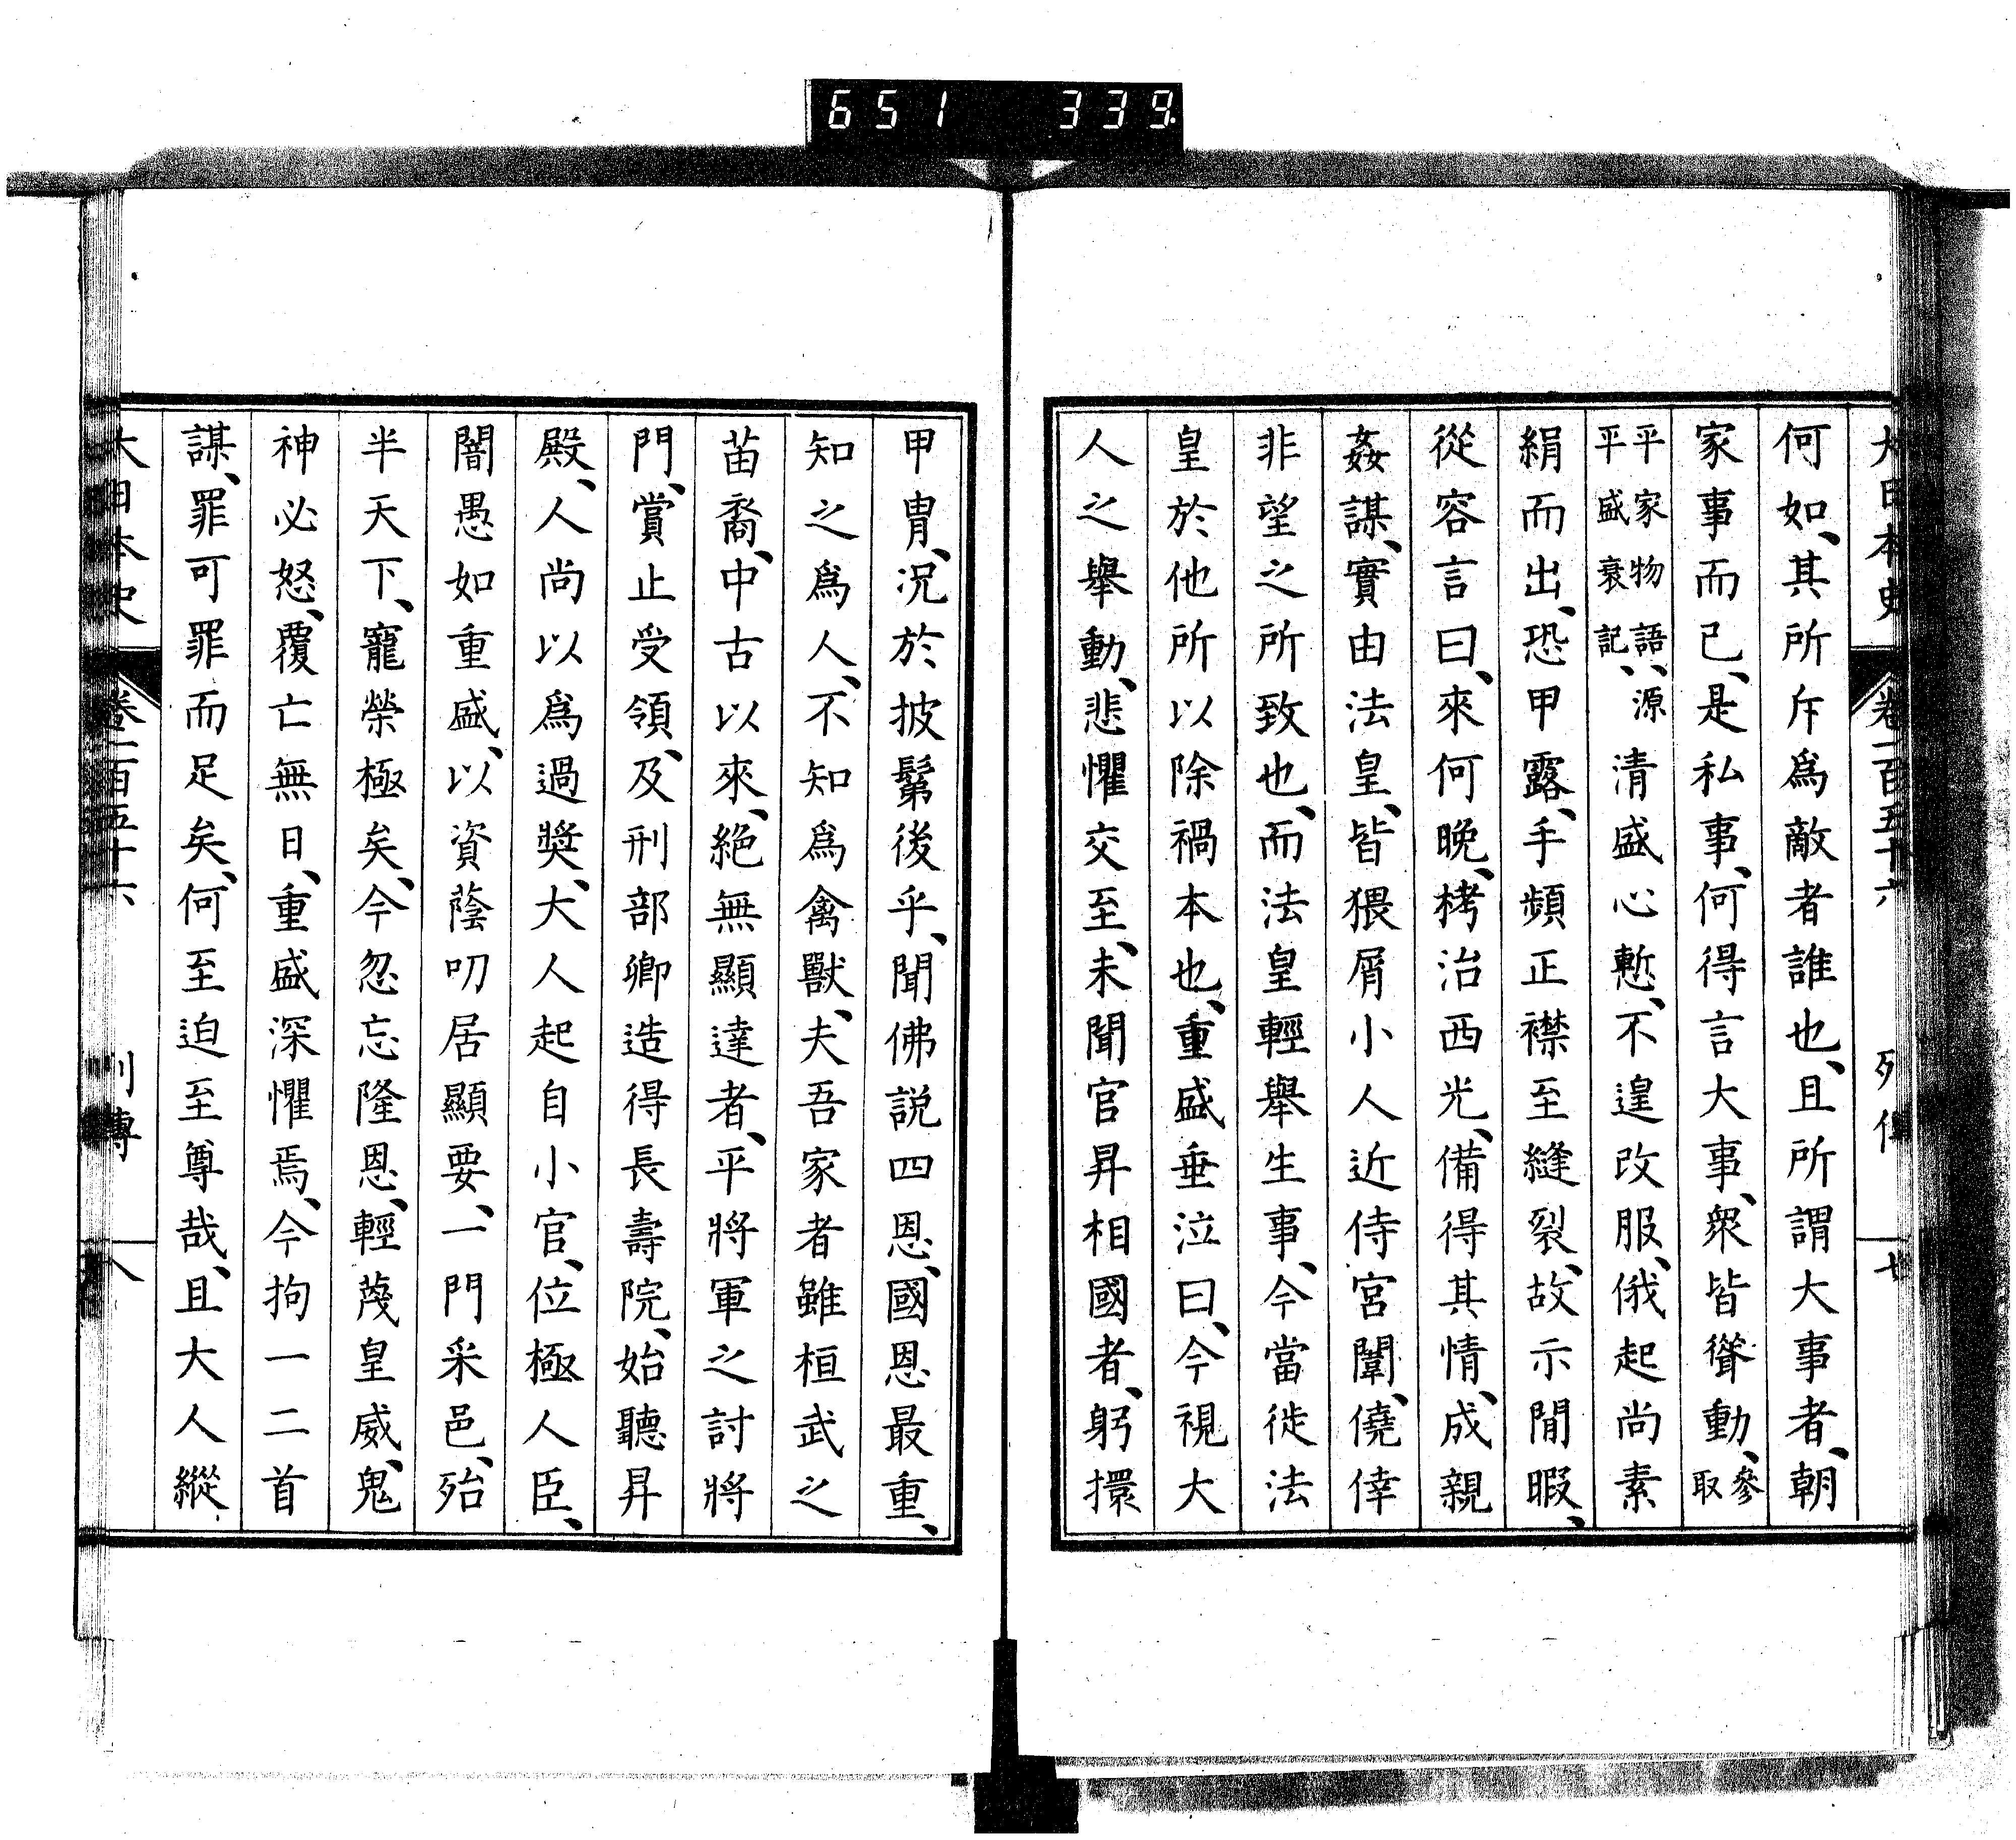 651 339
大日本史 卷一百五十六 列傳 七
何如、其所斥爲敵者誰也、且所謂大事者、朝
家事而已、是私事、何得言大事、衆皆聳動、參取
平家物語、源平盛衰記、清盛心慙、不遑改服、俄起尚素
絹而出、恐甲露、手頻正襟至縫裂、故示閒暇、
從容言曰、來何晚、栲治西光、備得其情、成親
姦謀、實由法皇、皆猥屑小人近侍宮闈、僥倖
非望之所致也、而法皇輕舉生事、今當徙法
皇於他所以除禍本也、重盛垂泣曰、今視大
人之舉動、悲懼交至、未聞官昇相國者、躬擐
甲冑、況於披鬀後乎、聞佛說四恩、國恩最重、
知之爲人、不知爲禽獸、夫吾家者雖桓武之
苗裔、中古以來、絕無顯達者、平將軍之討將
門、賞止受領、及刑部卿造得長壽院、始聽昇
殿、人尚以爲過奬、大人起自小官、位極人臣、
闇愚如重盛、以資蔭叨居顯要、一門采邑、殆
半天下、寵榮極矣、今忽忘隆恩、輕蔑皇威、鬼
神必怒、覆亡無日、重盛深懼焉、今拘一二首
謀、罪可罪而足矣、何至迫至尊哉、且大人縱
大日本史 卷一百五十六 列傳 八